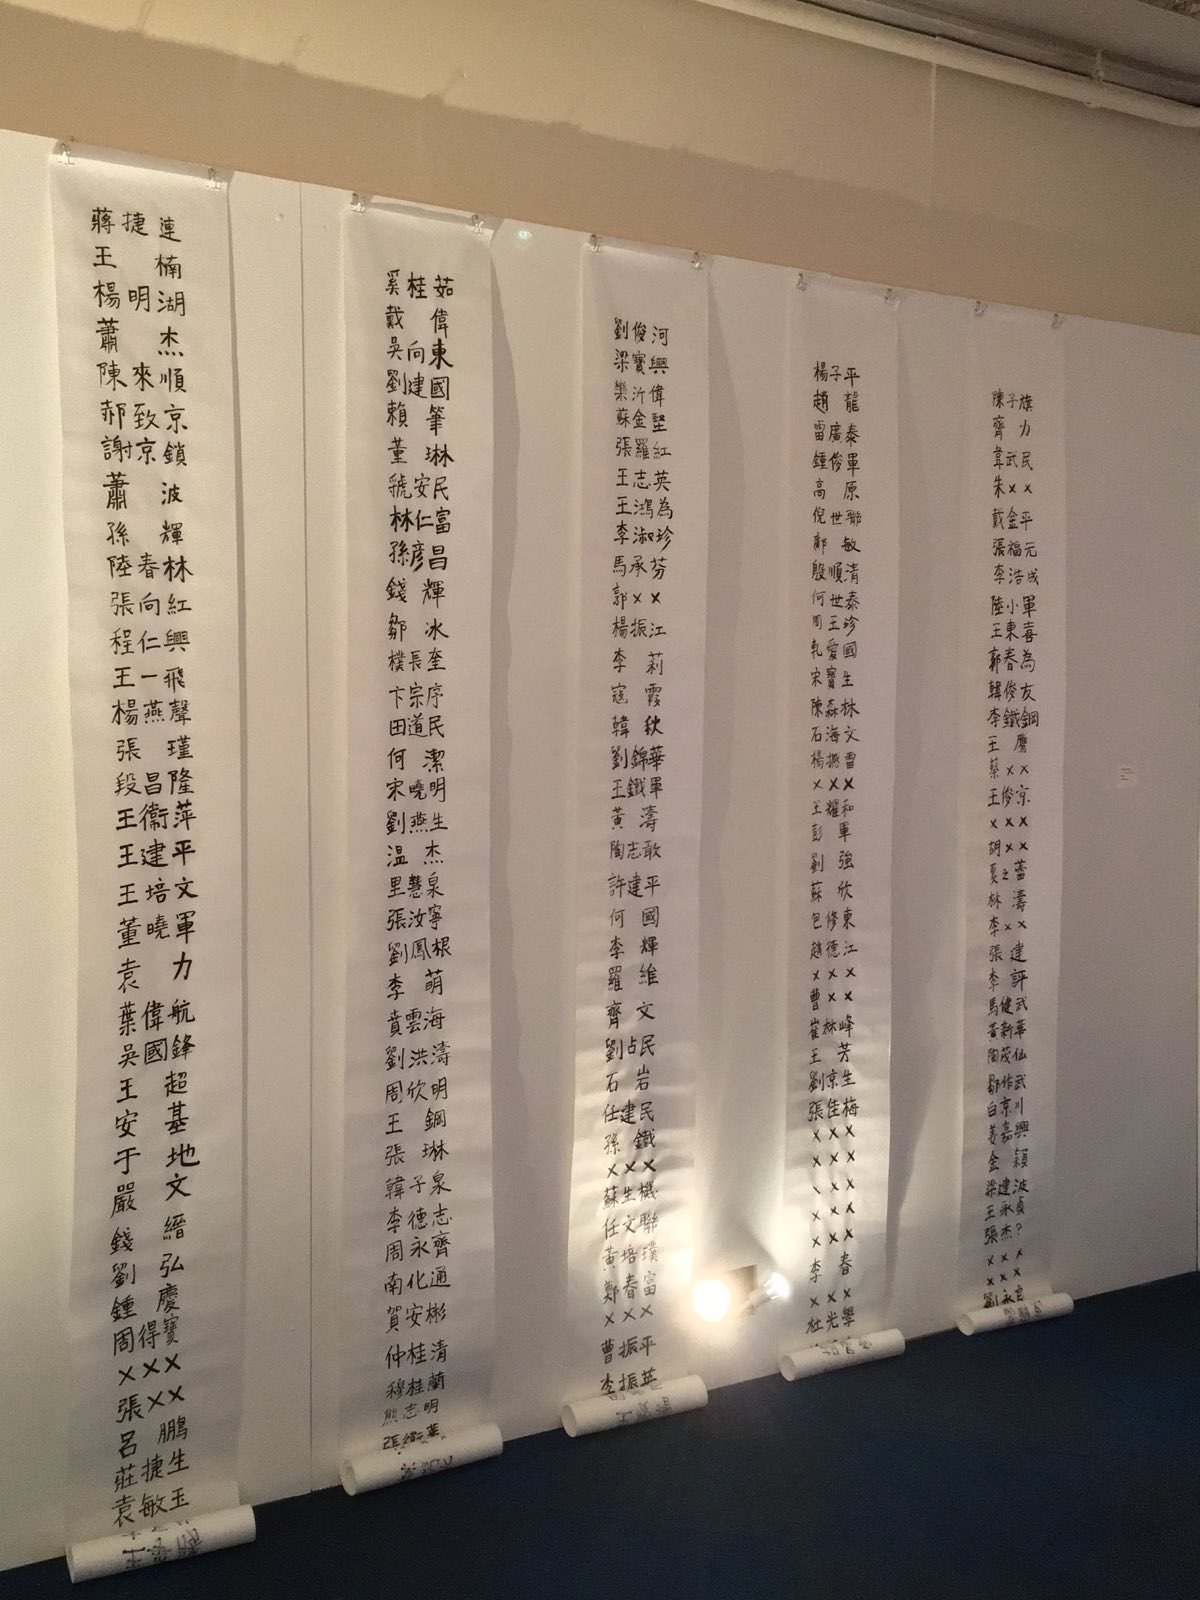 蔣捷連
王楠
楊明湖
蕭杰
陳來順
郝致京
謝京鎖
蕭波
孫輝
陸春林
張向紅
程仁興
王一飛
楊燕聲
張瑾
段昌隆
王衛萍
王建平
王培文
董曉軍
袁力
葉偉航
吳國鋒
王超
安基
于地
嚴文
錢縉
劉弘
鍾慶
周得寶
×××
張××
呂鵬
莊捷生
袁敏玉
奚桂茹
戴偉
吳向東
劉建國
賴筆
董琳
虢安民
林仁富
孫彥昌
錢輝
鄒冰
樸長奎
卞宗序
田道民
何潔
宋曉明
劉燕生
溫杰
里慧泉
張汝寧
劉鳳根
李萌
賁雲海
劉洪濤
周欣明
王鋼
張琳
韓子泉
李德志
周永齊
南化通
賀安彬
仲桂清
穆桂蘭
熊志明
張衛華
劉俊河
梁寶興
樂沂偉
蘇金堅
張羅紅
王志英
王鴻為
李淑珍
馬承芬
郭××
楊振江
李莉
寇霞
韓秋
劉錦華
王鐵軍
黃濤
陶志敢
許建平
何國
李輝
羅維
齊文
劉占民
石岩
任建民
孫鐵
×××
蘇生機
任文聯
黃培璞
鄭春富
×××
曹振平
李振英
楊子平
趙龍
雷廣泰
鍾俊軍
高原
倪世聯
郭敏
殷順清
何世泰
周玉珍
軋愛國
宋寶生
陳森林
石海文
楊振雷
×××
王耀和
彭軍
劉強
蘇欣
包修東
趙德江
×××
曹××
崔林峰
王芳
劉京生
張佳梅
×××
×××
×××
×××
×××
李春
×××
杜光學
陳子旗
齊力
韋武民
朱××
戴金平
張福元
李浩成
陸小軍
王東喜
郭春為
韓俊友
李鐵鋼
王鷹
蔡××
王俊京
×××
胡××
夏之蕾
林濤
李××
張建
李評
馬健武
黃新華
陶茂仙
鄒作武
白京川
姜嘉興
金穎
梁建波
王永貞
張杰?
×××
×××